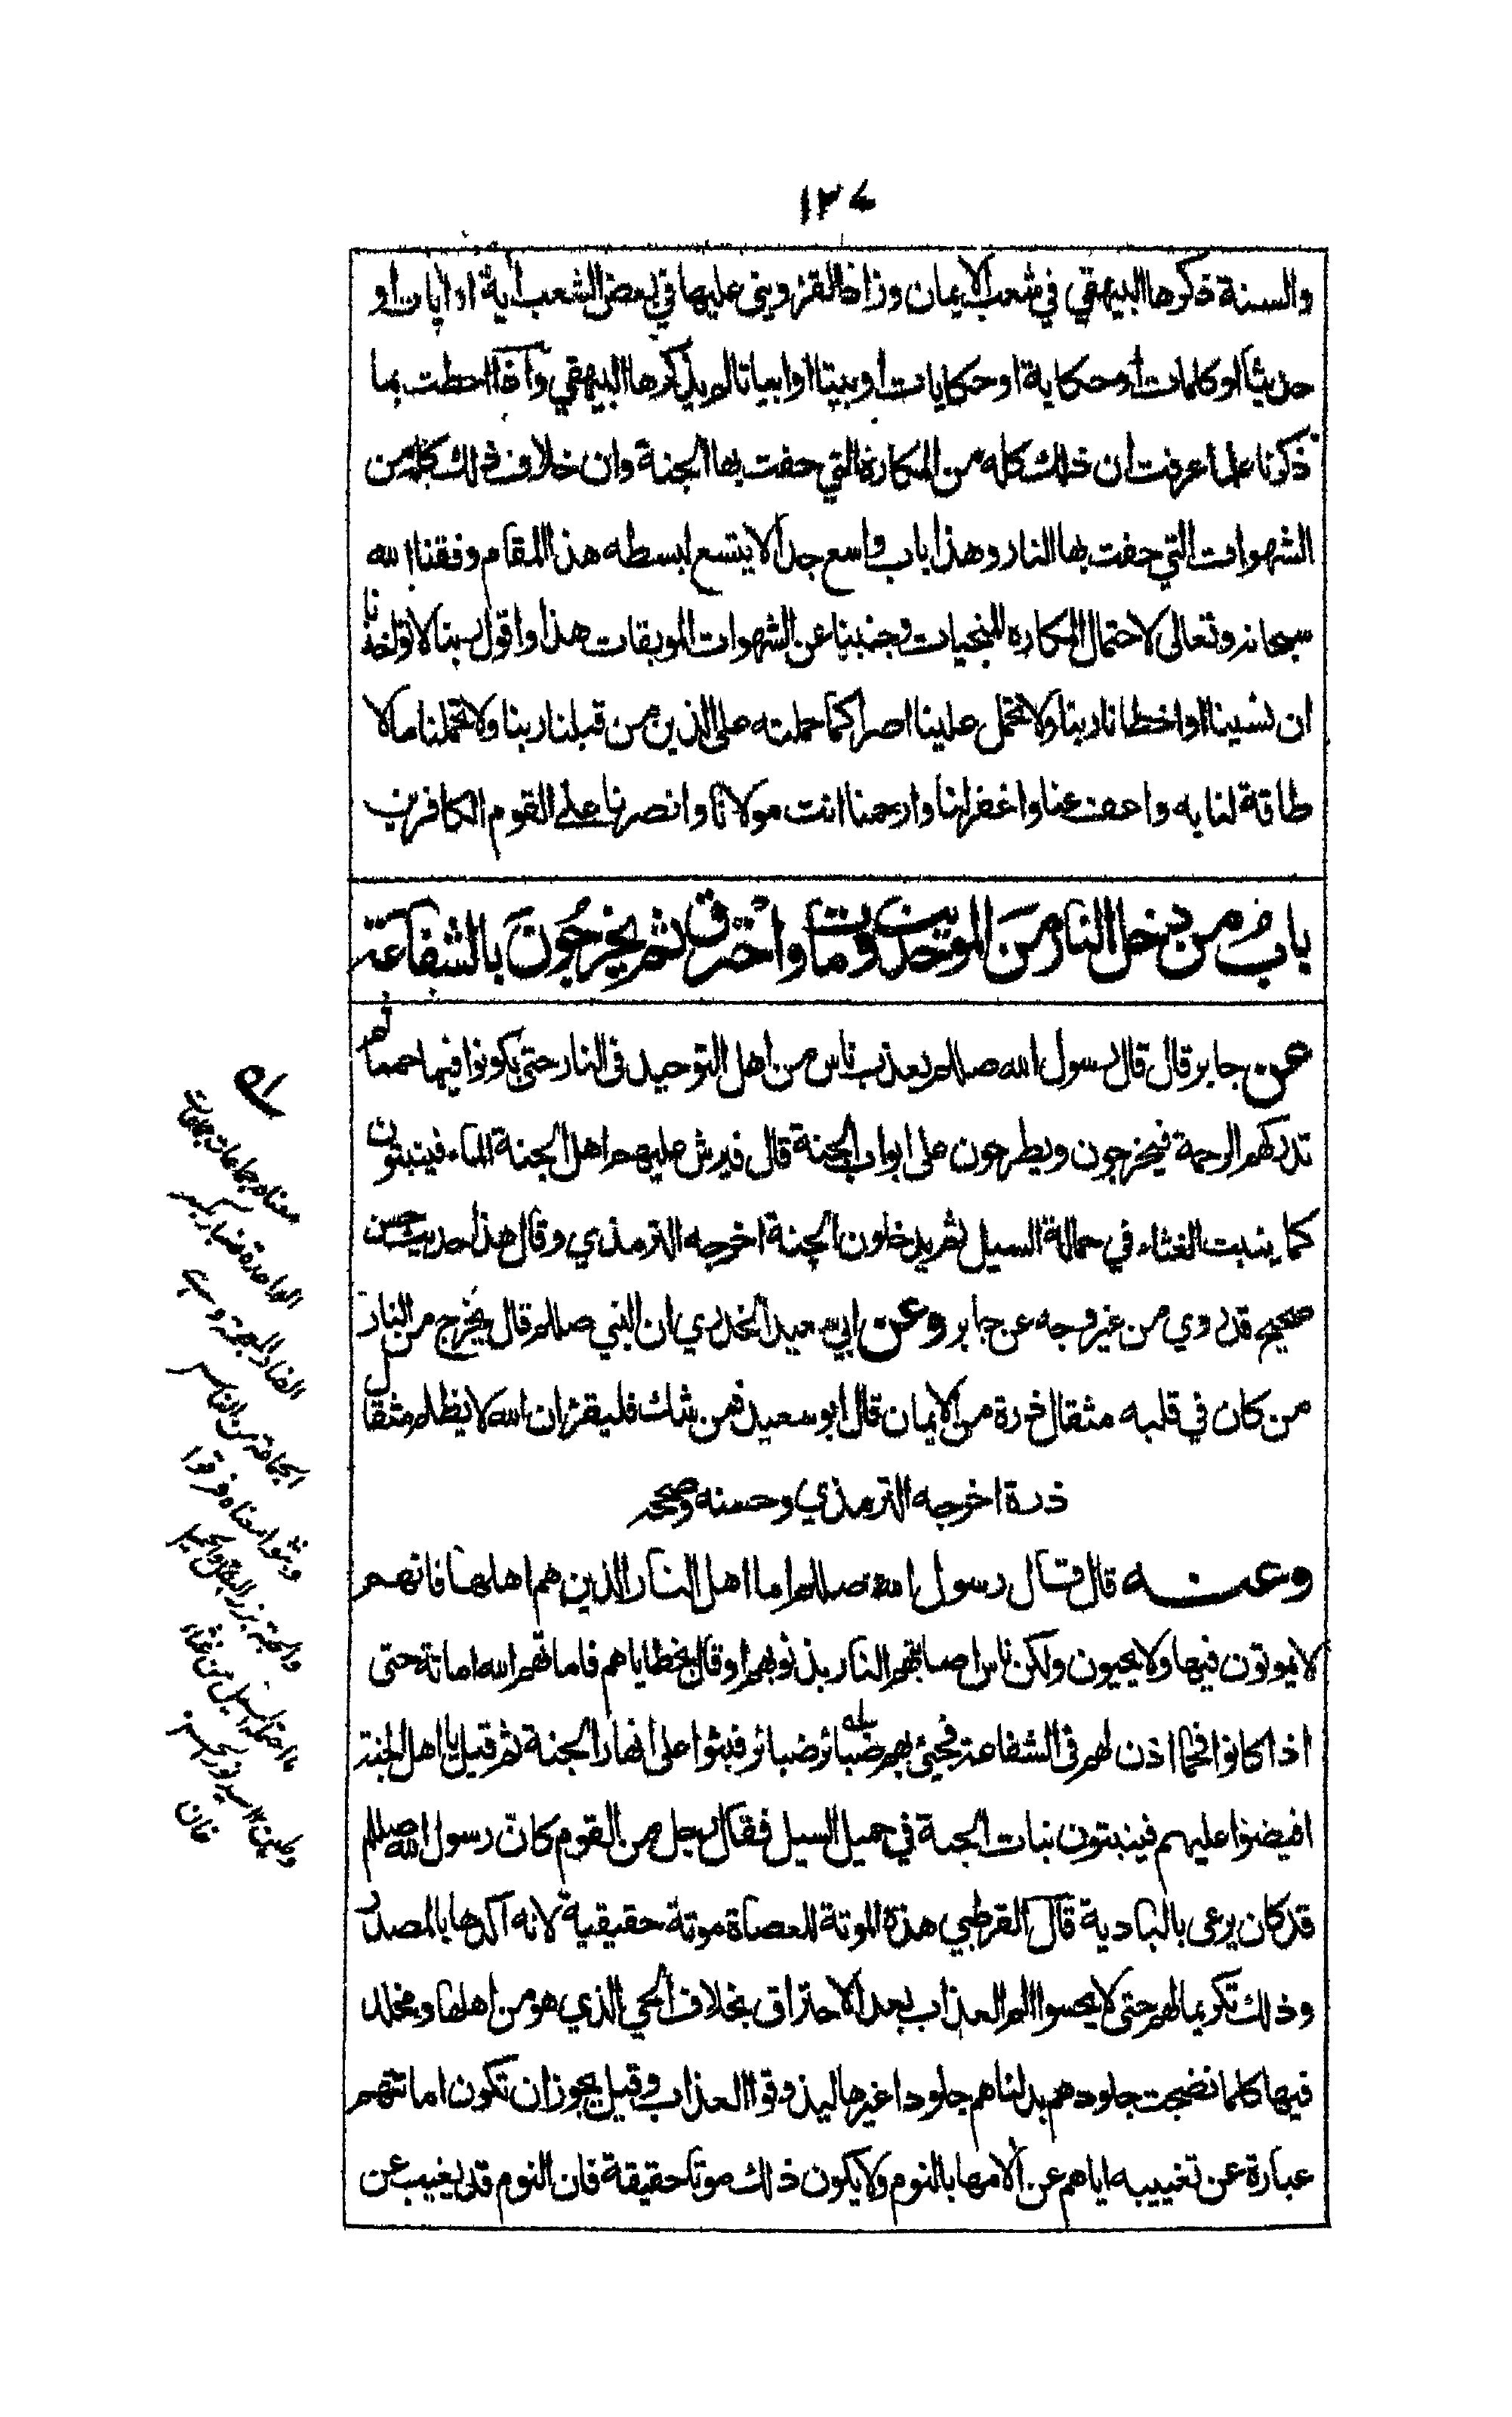 ١٣٤
والسنة ذكرها البيهقي في شعب الايمان وزاد القزويني عليها في بعض الشعب اية او ايات او
حديثا او كلمات او حكاية او حكايات او بيتا او ابياتا لم يذكرها البيهقي واذا احطت بما
ذكرنا علما عرفت ان ذلك كله من المكاره التي حفت بها الجنة وان خلاف ذلك كله من
الشهوات التي حفت بها النار وهذا باب واسع جدا لا يتسع لبسطه هذا المقام وفقنا الله
سبحانه وتعالى لاحتمال المكاره المنجيات وجنبنا عن الشهوات الموبقات هذا واقول ربنا لا تؤاخذنا
ان نسينا او اخطانا ربنا ولا تحمل علينا اصرا كما حملته على الذين من قبلنا ربنا ولا تحملنا ما لا
طاقة لنا به واعف عنا واغفر لنا وارحمنا انت مولانا وانصرنا على القوم الكافرين
باب من دخل النار من الموحدين ومات واحترق ثم يخرجون بالشفاعة
عن جابر قال قال رسول الله صلعم يعذب ناس من اهل التوحيد في النار حتى يكونوا فيها حمما ثم
تدركهم الرحمة فيخرجون ويطرحون على ابواب الجنة قال فيرش عليهم اهل الجنة الماء فينبتون
كما ينبت الغثاء في حمالة السيل ثم يدخلون الجنة اخرجه الترمذي وقال هذا حديث حسن
صحيح قد روي من غير وجه عن جابر وعن ابي سعيد الخدري ان النبي صلعم قال يخرج من النار
من كان في قلبه مثقال ذرة من الايمان قال ابو سعيد فمن شك فليقرأ ان الله لا يظلم مثقال
ذرة اخرجه الترمذي وحسنه وصححه
وعنه قال قال رسول الله صلعم اما اهل النار الذين هم اهلها فانهم
لا يموتون فيها ولا يحيون ولكن ناس اصابتهم النار بذنوبهم او قال بخطاياهم فاماتهم الله اماتة حتى
اذا كانوا فحما اذن لهم في الشفاعة فجيئ بهم ضبائر ضبائر فبثوا على انهار الجنة ثم قيل يا اهل الجنة
افيضوا عليهم فينبتون نبات الحبة في حميل السيل فقال رجل من القوم كان رسول الله صلعم
قد كان يرعى بالبادية قال القرطبي هذه الموتة للعصاة موتة حقيقية لانه اكدها بالمصدر
وذلك تكريما لهم حتى لا يحسوا الم العذاب بعد الاحتراق بخلاف الحي الذي هو من اهلها ومخلد
فيها كلما نضجت جلودهم بدلناهم جلودا غيرها ليذوقوا العذاب وقيل يجوز ان تكون اماتتهم
عبارة عن تغييبه اياهم عن آلامها بالنوم ولا يكون ذلك موتا حقيقة فان النوم قد يغيب عن
معناه جماعات
الواحدة ضبارة بكسر
الضاد المعجمة وهي
الجماعة من الناس
وبثوا معناه فرقوا
والحبة بزر البقل والحميل
ما احتمله السيل من غثاء
وطين